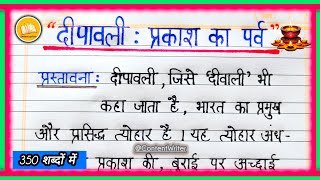 “दीपावली : प्रकाश का पर्व”
प्रस्तावना : दीपावली, जिसे ‘दीवाली’ भी
कहा जाता है, भारत का प्रमुख
और प्रसिद्ध त्योहार है । यह त्योहार अंध-
@ContentWriter
350 शब्दों में
प्रकाश की, बुराई पर अच्छाई